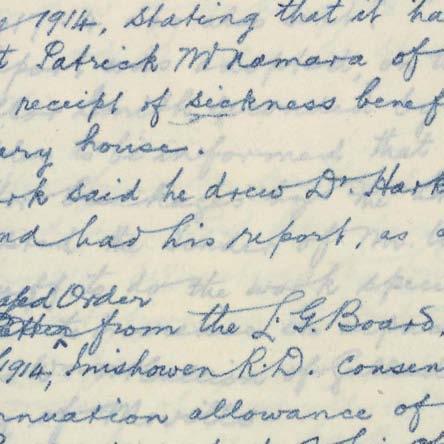 1914, stating that it ha
t Patrick McNamara of
receipt of sickness benef
ery house.
rk said he drew Dr. Hark
nd had his report, as a
Order
from the L.G. Board,
1914, Inishowen R.D. consen
nnuation allowance of